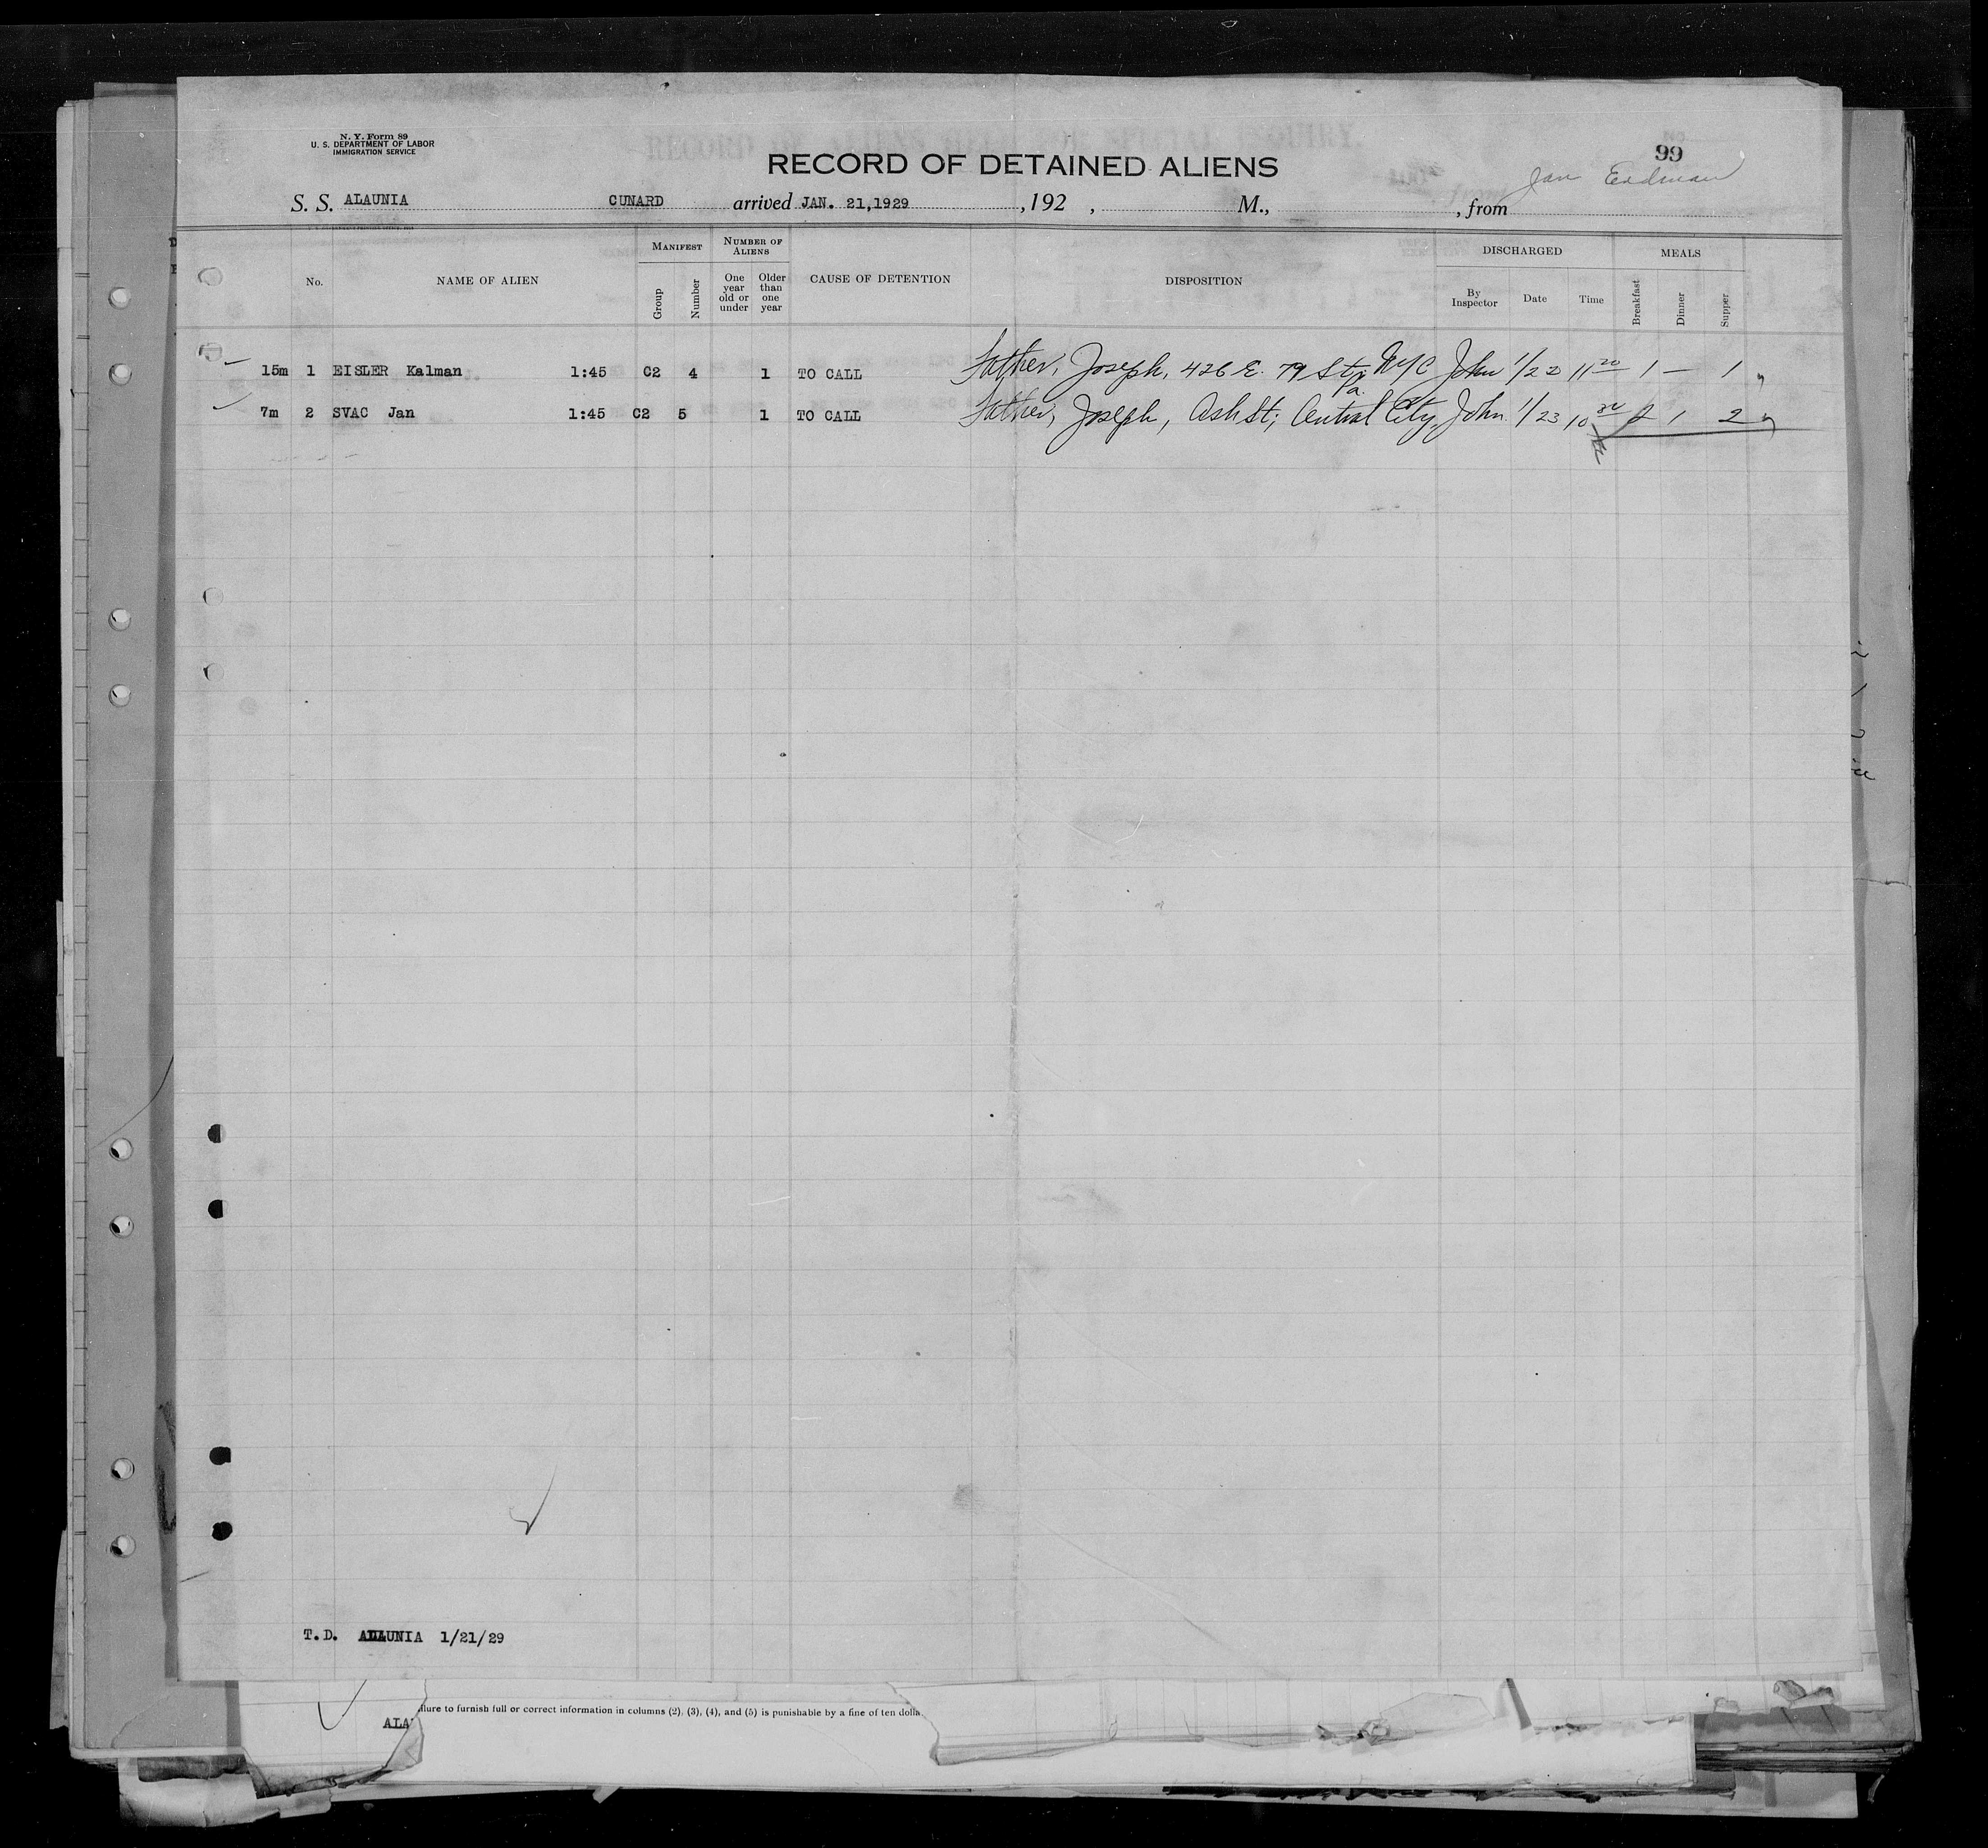 N. Y. Form 89
U. S. DEPARTMENT OF LABOR
IMMIGRATION SERVICE
RECORD OF ALIENS HELD FOR SPECIAL INQUIRY.
RECORD OF DETAINED ALIENS
99
Jan Erdman
S. S. ALAUNIA CUNARD arrived JAN. 21,1929 , 192 , M., , from
No.
NAME OF ALIEN
MANIFEST
Group
Number
NUMBER OF ALIENS
One year old or under
Older than one year
CAUSE OF DETENTION
DISPOSITION
DISCHARGED
By Inspector
Date
Time
MEALS
Breakfast
Dinner
Supper
15m 1 EISLER Kalman 1:45 C2 4 1 TO CALL Father, Joseph, 426 E. 79 St; NYC John 1/22 11 20 1 — 1
7m 2 SVAC Jan 1:45 C2 5 1 TO CALL Father, Joseph, Ash St; Central City, Pa. John 1/23 10 30 2 1 2
T.D. ALAUNIA 1/21/29
ilure to furnish full or correct information in columns (2), (3), (4), and (5) is punishable by a fine of ten dolla
ALA